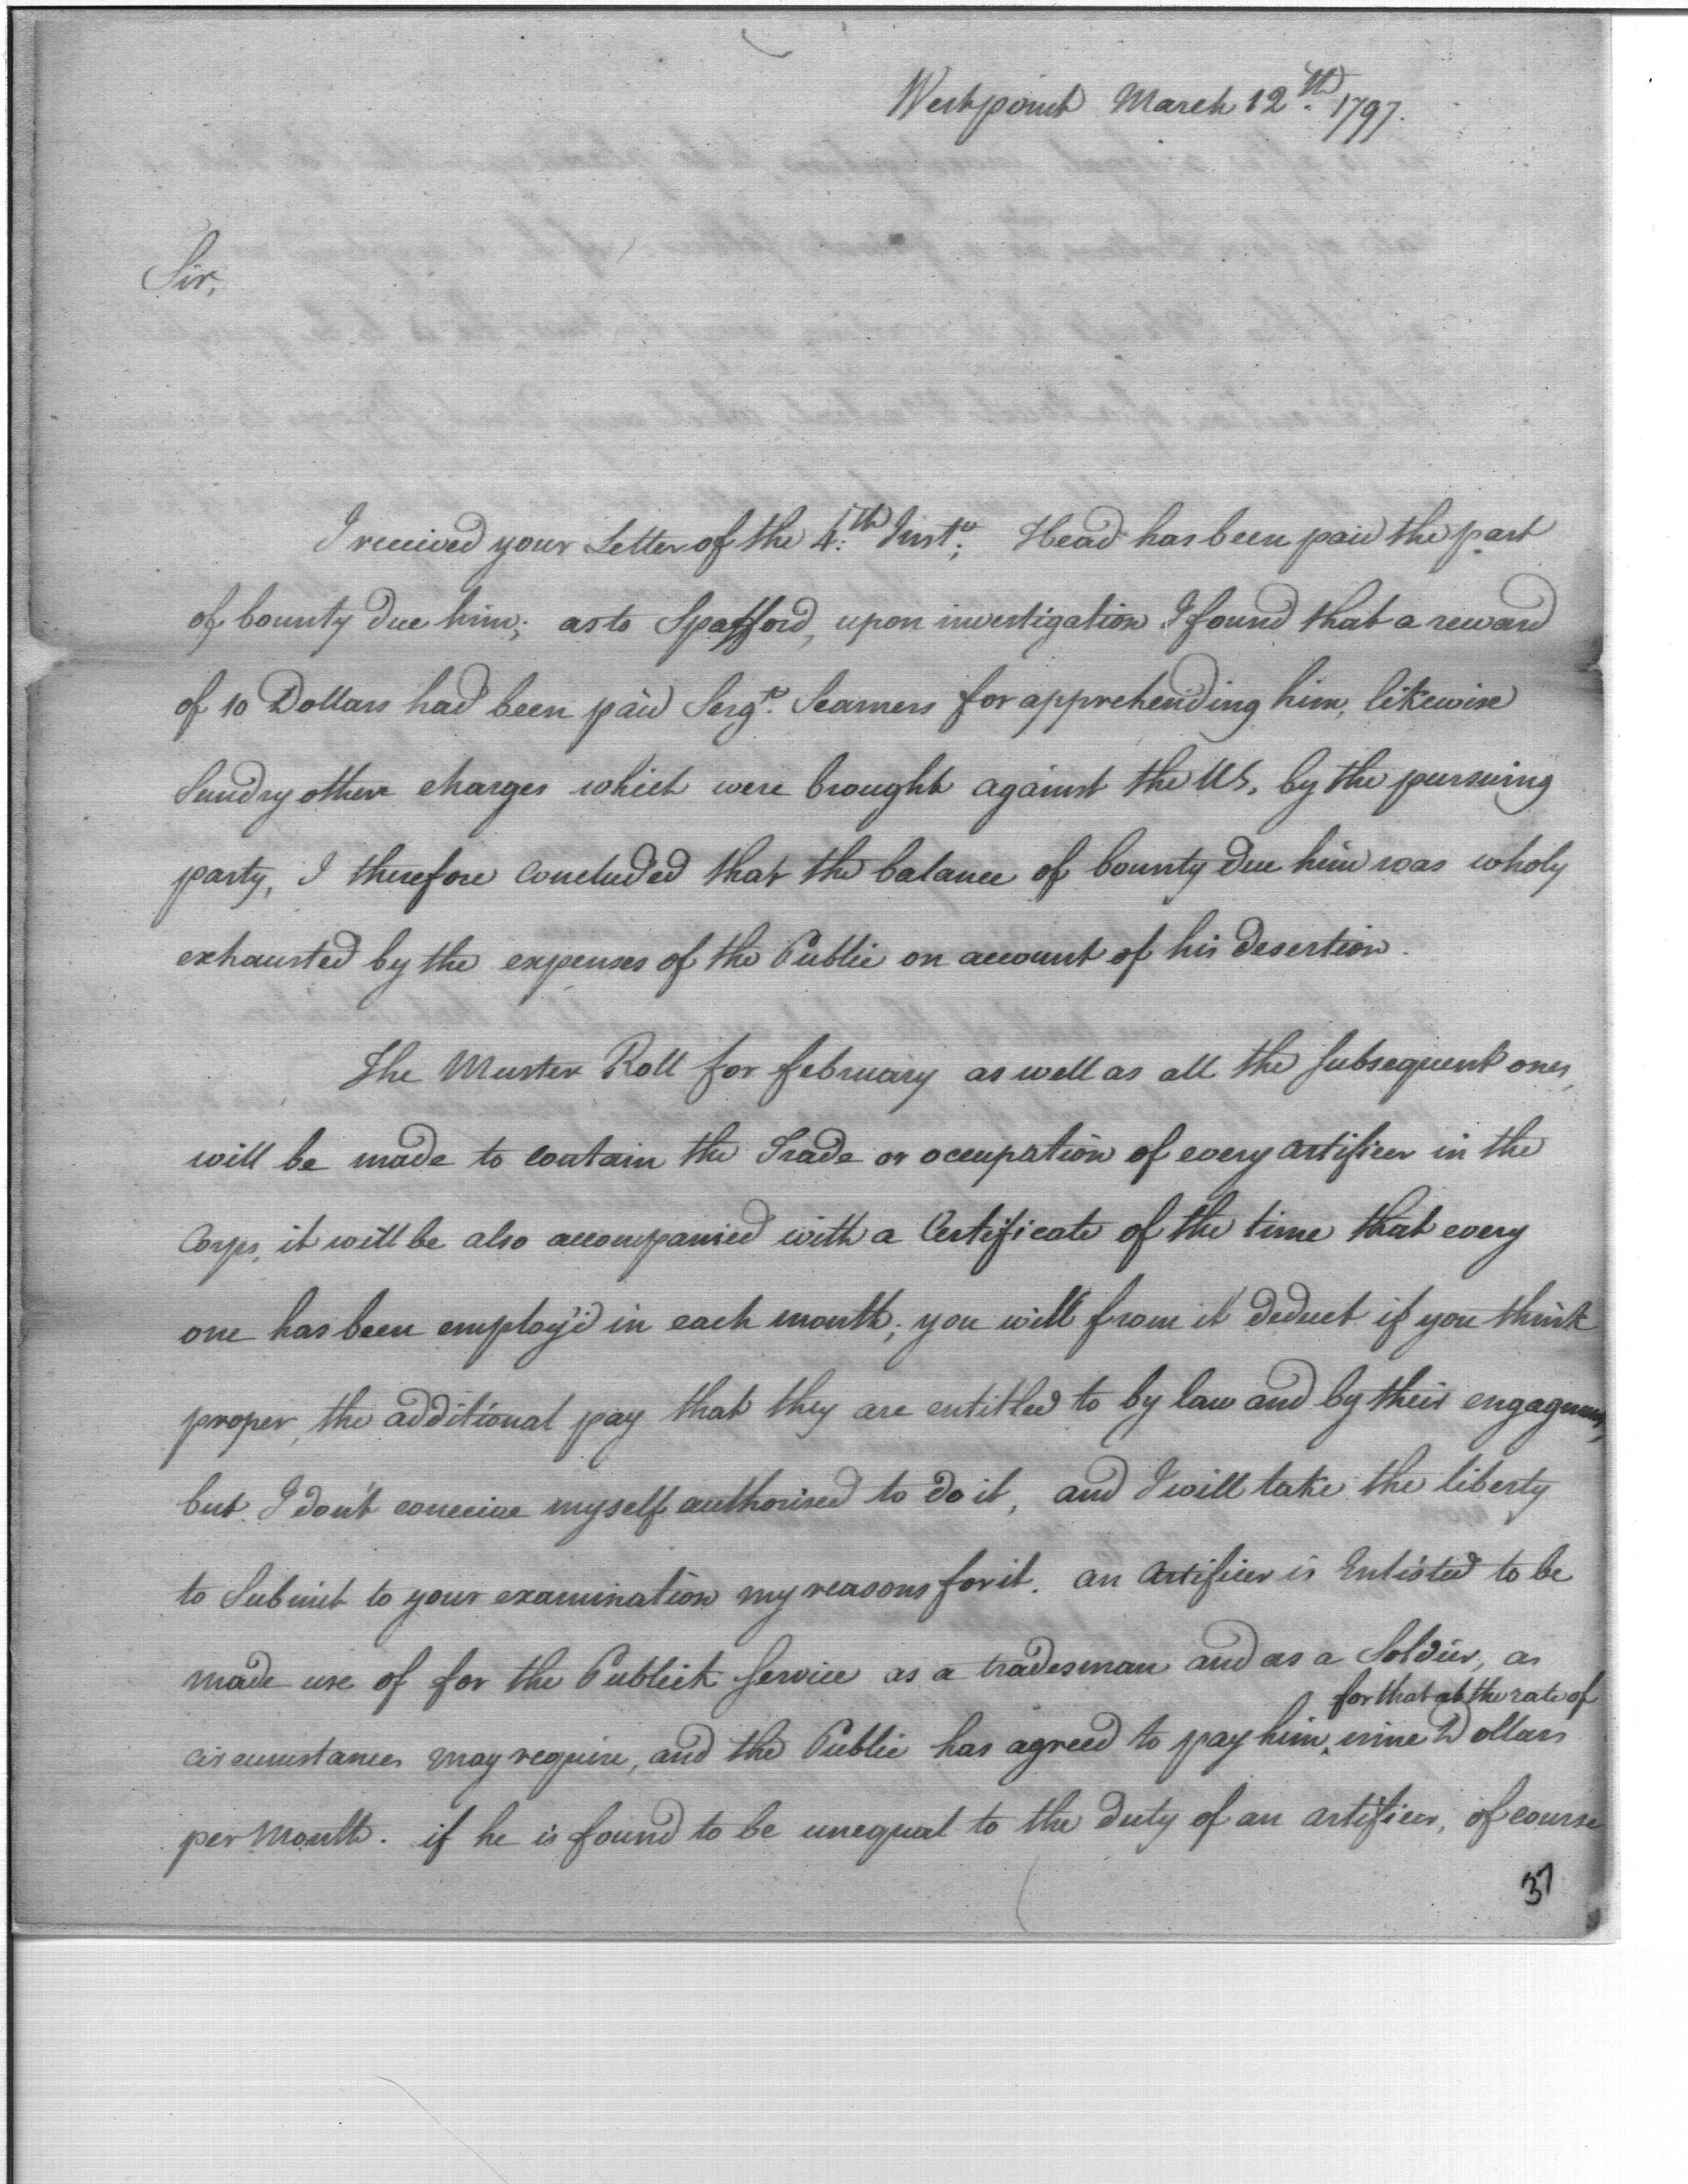 Westpoint March 12th. 1797.
Sir,
I received your Letter of the 4th. Inst.; Head has been paid the part
of bounty due him; as to Spafford, upon investigation I found that a reward
of 10 Dollars had been paid Sergt. Searners for apprehending him, likewise
Sundry other charges which were brought against the US, by the pursuing
party, I therefore concluded that the balance of bounty due him was wholy
exhausted by the expenses of the Public on account of his desertion.
The Muster Roll for february as well as all the subsequent ones,
will be made to contain the Trade or occupation of every artificer in the
Corps, it will be also accompanied with a Certificate of the time that every
one has been employ'd in each month; you will from it deduct if you think
proper, the additional pay that they are entitled to by law and by their
but I don't conceive myself authorised to do it, and I will take the liberty
to Submit to your examination my reasons for it. an artificer is Enlisted to be
made use of for the Publick service as a tradesman and as a Soldier, as
for that at the rate of
circumstances may require, and the Public has agreed to pay him nine Dollars
per Month. if he is found to be unequal to the duty of an artificer, of course
37